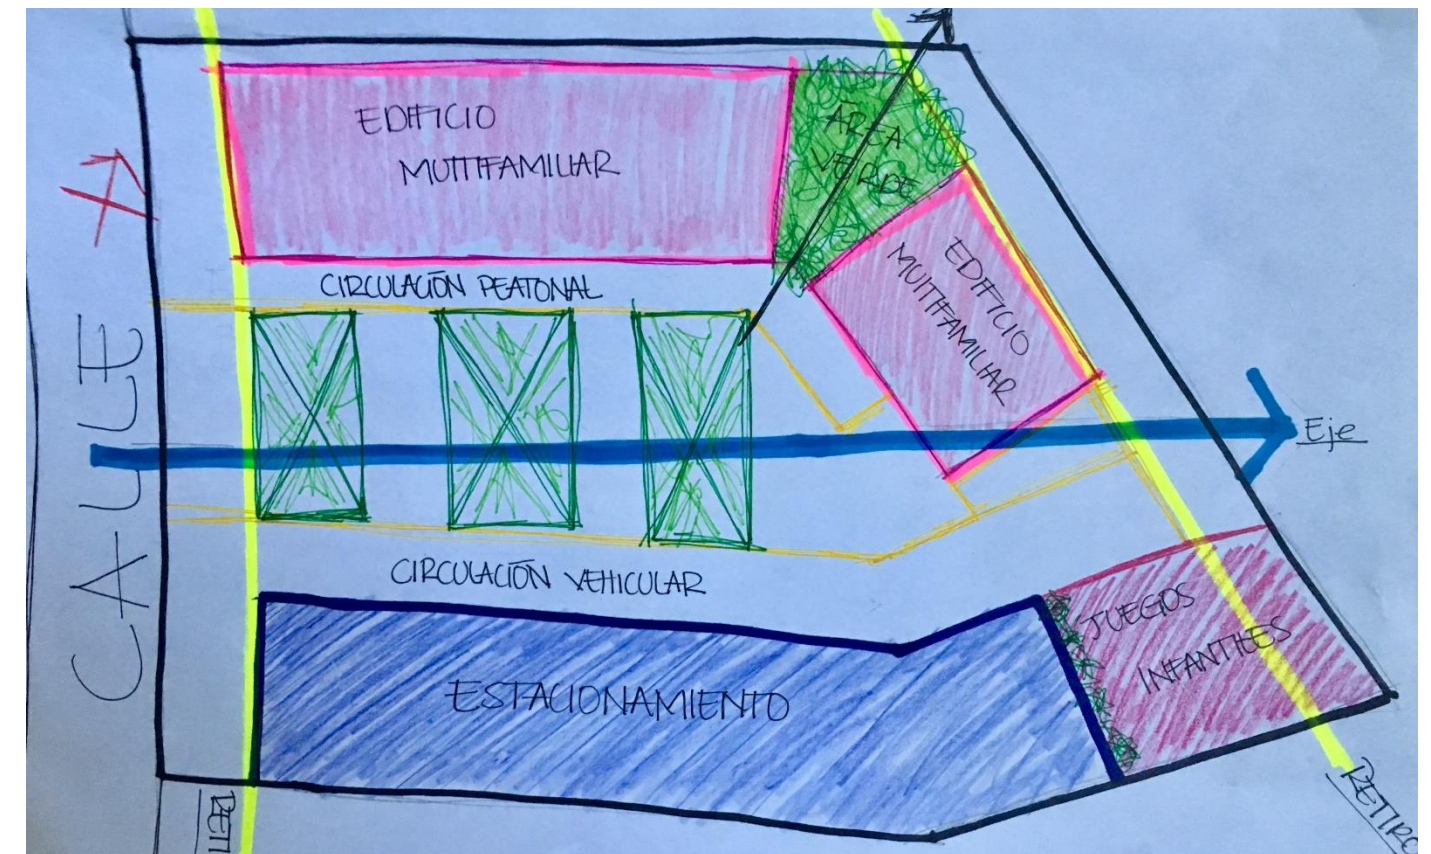 EDIFICIO
MULTIFAMILIAR
ÁREA
VERDE
EDIFICIO
MULTIFAMILIAR
CIRCULACIÓN PEATONAL
CALLE
Eje
CIRCULACIÓN VEHICULAR
JUEGOS
INFANTILES
ESTACIONAMIENTO
RETI
RETIRO